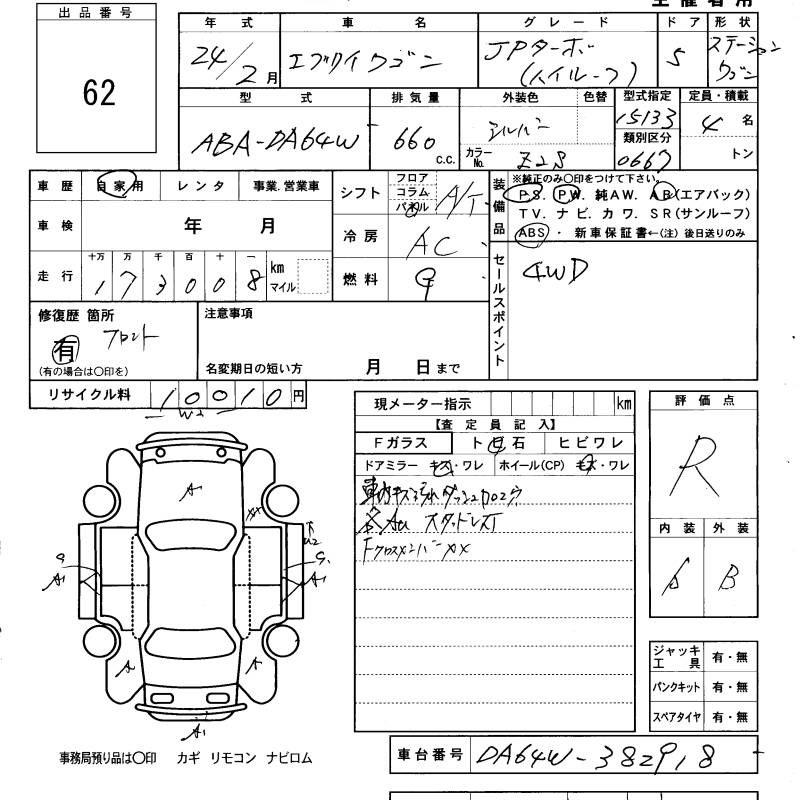 出品番号
62
年式 車名 グレード ドア 形状
24/2月 エブリイワゴン JPターボ(ハイルーフ) 5 ステーションワゴン
型式 排気量 外装色 色替 型式指定 定員・積載
ABA-DA64W 660 c.c. シルバー 15133 4名
カラーNo. Z2S 類別区分 0667 トン
車歴 自家用 レンタ 事業.営業車
シフト フロア コラム パネル A/T
装備品 ※純正のみ〇印をつけて下さい。
PS. PW. 純AW. AB(エアバック)
TV. ナビ. カワ. SR(サンルーフ)
ABS ・ 新車保証書←(注) 後日送りのみ
車検 年 月
冷房 AC
走行 十万 万 千 百 十 一
173008 km マイル
燃料 G
セールスポイント
4WD
修復歴 箇所
有 フロント
(有の場合は〇印を)
注意事項
名変期日の短い方 月 日まで
リサイクル料 10010円
W2
現メーター指示 km
【査定員記入】
Fガラス ト目石 ヒビワレ
ドアミラー キズ・ワレ ホイール(CP) キズ・ワレ
車内キズ汚れ ダッシュカロコウ
スタッドレス
Fクロスメンバー XX
評価点
R
内装 外装
B
A
XX
U2
G
G
A1
A1
A
A
A1
ジャッキ工具 有・無
パンクキット 有・無
スペアタイヤ 有・無
事務局預り品は〇印 カギ リモコン ナビロム
車台番号 DA64W-382918